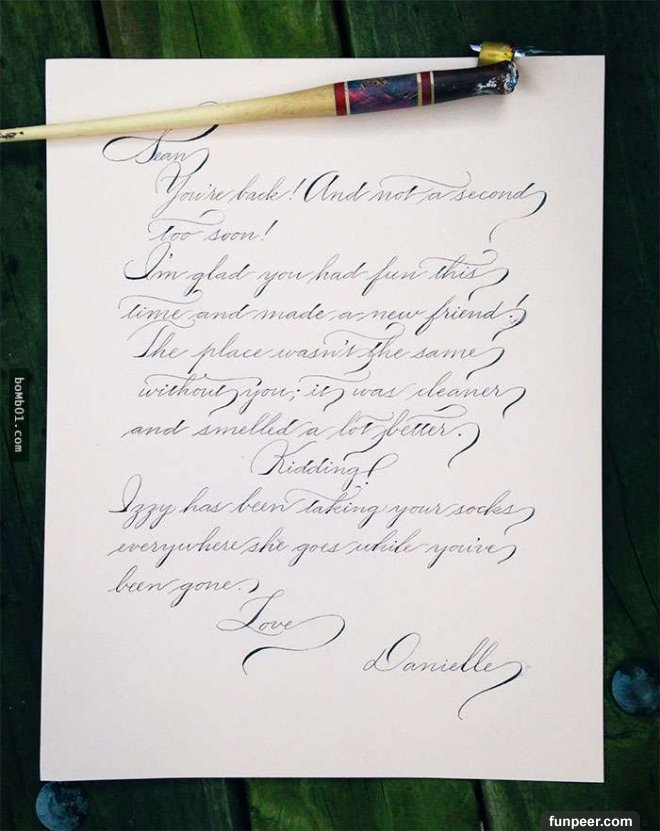 Sean
You're back! And not a second
too soon!
I'm glad you had fun this
time and made a new friend!
The place wasn't the same
without you; it was cleaner
and smelled a lot better.
Kidding!
Izzy has been taking your socks
everywhere she goes while you've
been gone.
Love
Danielle
bomb01.com
funpeer.com